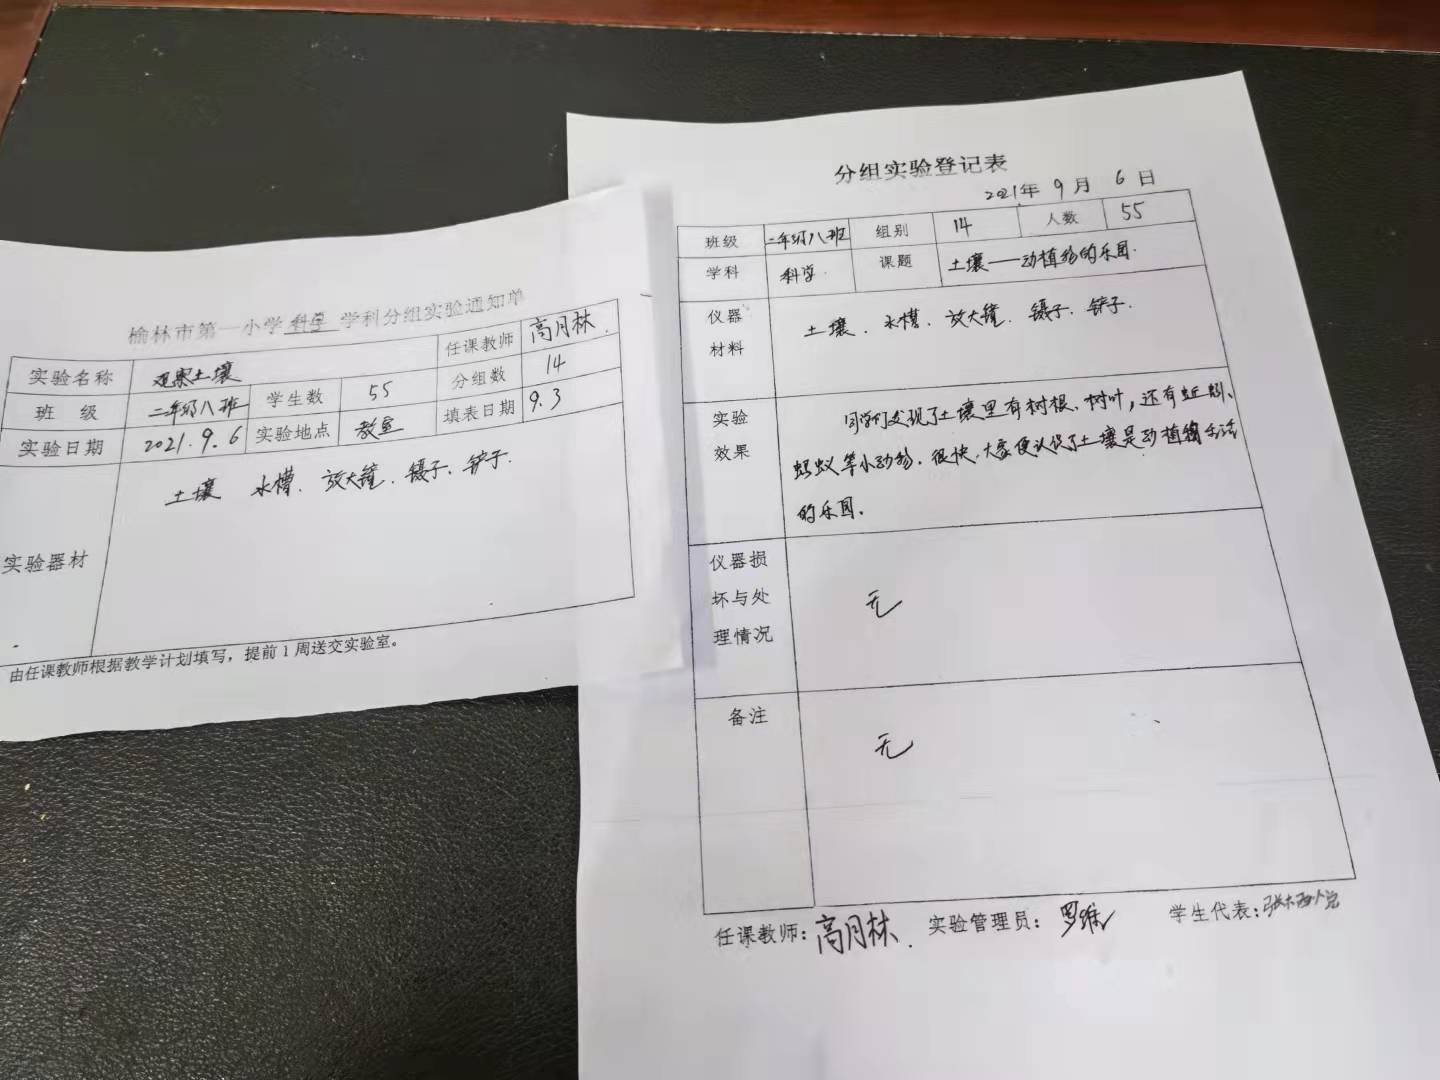 榆林市第一小学科学学科分组实验通知单
实验名称 观察土壤 任课教师 高月林
班 级 二年级八班 学生数 55 分组数 14
实验日期 2021.9.6 实验地点 教室 填表日期 9.3
实验器材 土壤 水槽、放大镜、镊子、铲子、
由任课教师根据教学计划填写，提前1周送交实验室。
分组实验登记表
2021年 9月 6日
班级 二年级八班 组别 14 人数 55
学科 科学 课题 土壤——动植物的乐园
仪器
材料
土壤、水槽、放大镜、镊子、铲子、
实验
效果
同学们发现了土壤里有树根、树叶，还有蚯蚓、
蚂蚁等小动物，很快，大家便认识了土壤是动植物生活
的乐园。
仪器损
坏与处
理情况
无
备注
无
任课教师：高月林 实验管理员：罗维 学生代表：